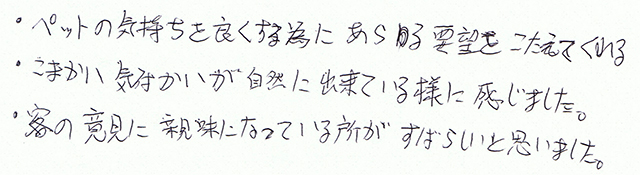 ・ペットの気持ちを良くする為にあらゆる要望をこたえてくれる
・こまかい気づかいが自然に出来ている様に感じました。
・客の意見に親味になっている所がすばらしいと思いました。